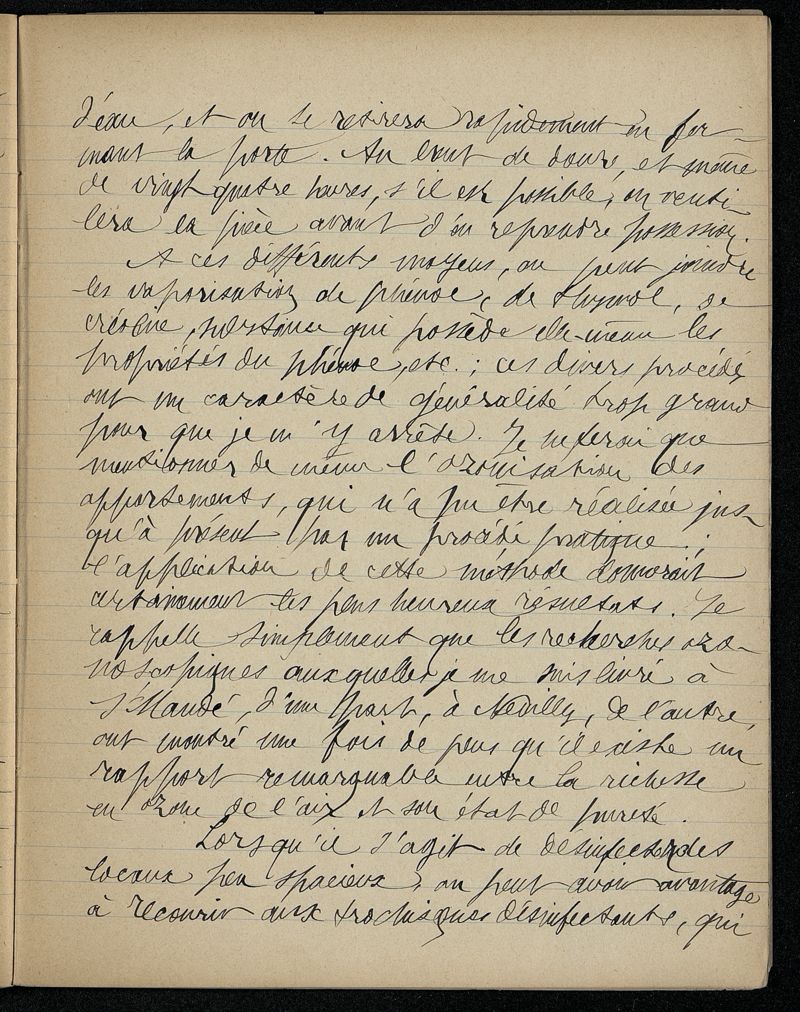 d'eau, et on se retirera rapidement en fer-
mant la porte. Au bout de douze, et même
de vingt quatre heures, s'il est possible, on venti-
lera la pièce avant d'en reprendre possession.
A ces différents moyens, on peut joindre
les vaporisations de phénol, de thymol, de
créoline, substance qui possède elle-même les
propriétés du phénol, etc. ; ces divers procédés
ont un caractère de généralité trop grand
pour que je m'y arrête. Je ne ferai que
mentionner de même l'ozonisation des
appartements, qui n'a pu être réalisée jus-
qu'à présent par un procédé pratique ;
l'application de cette méthode donnerait
certainement les plus heureux résultats. Je
rappelle simplement que les recherches ozo-
noscopiques auxquelles je me suis livré à
St Mandé, d'une part, à Neuilly, de l'autre,
ont montré une fois de plus qu'il existe un
rapport remarquable entre la richesse
en ozone de l'air et son état de pureté.
Lorsqu'il s'agit de désinfecter des
locaux peu spacieux, on peut avoir avantage
à recourir aux trochisques désinfectants, qui